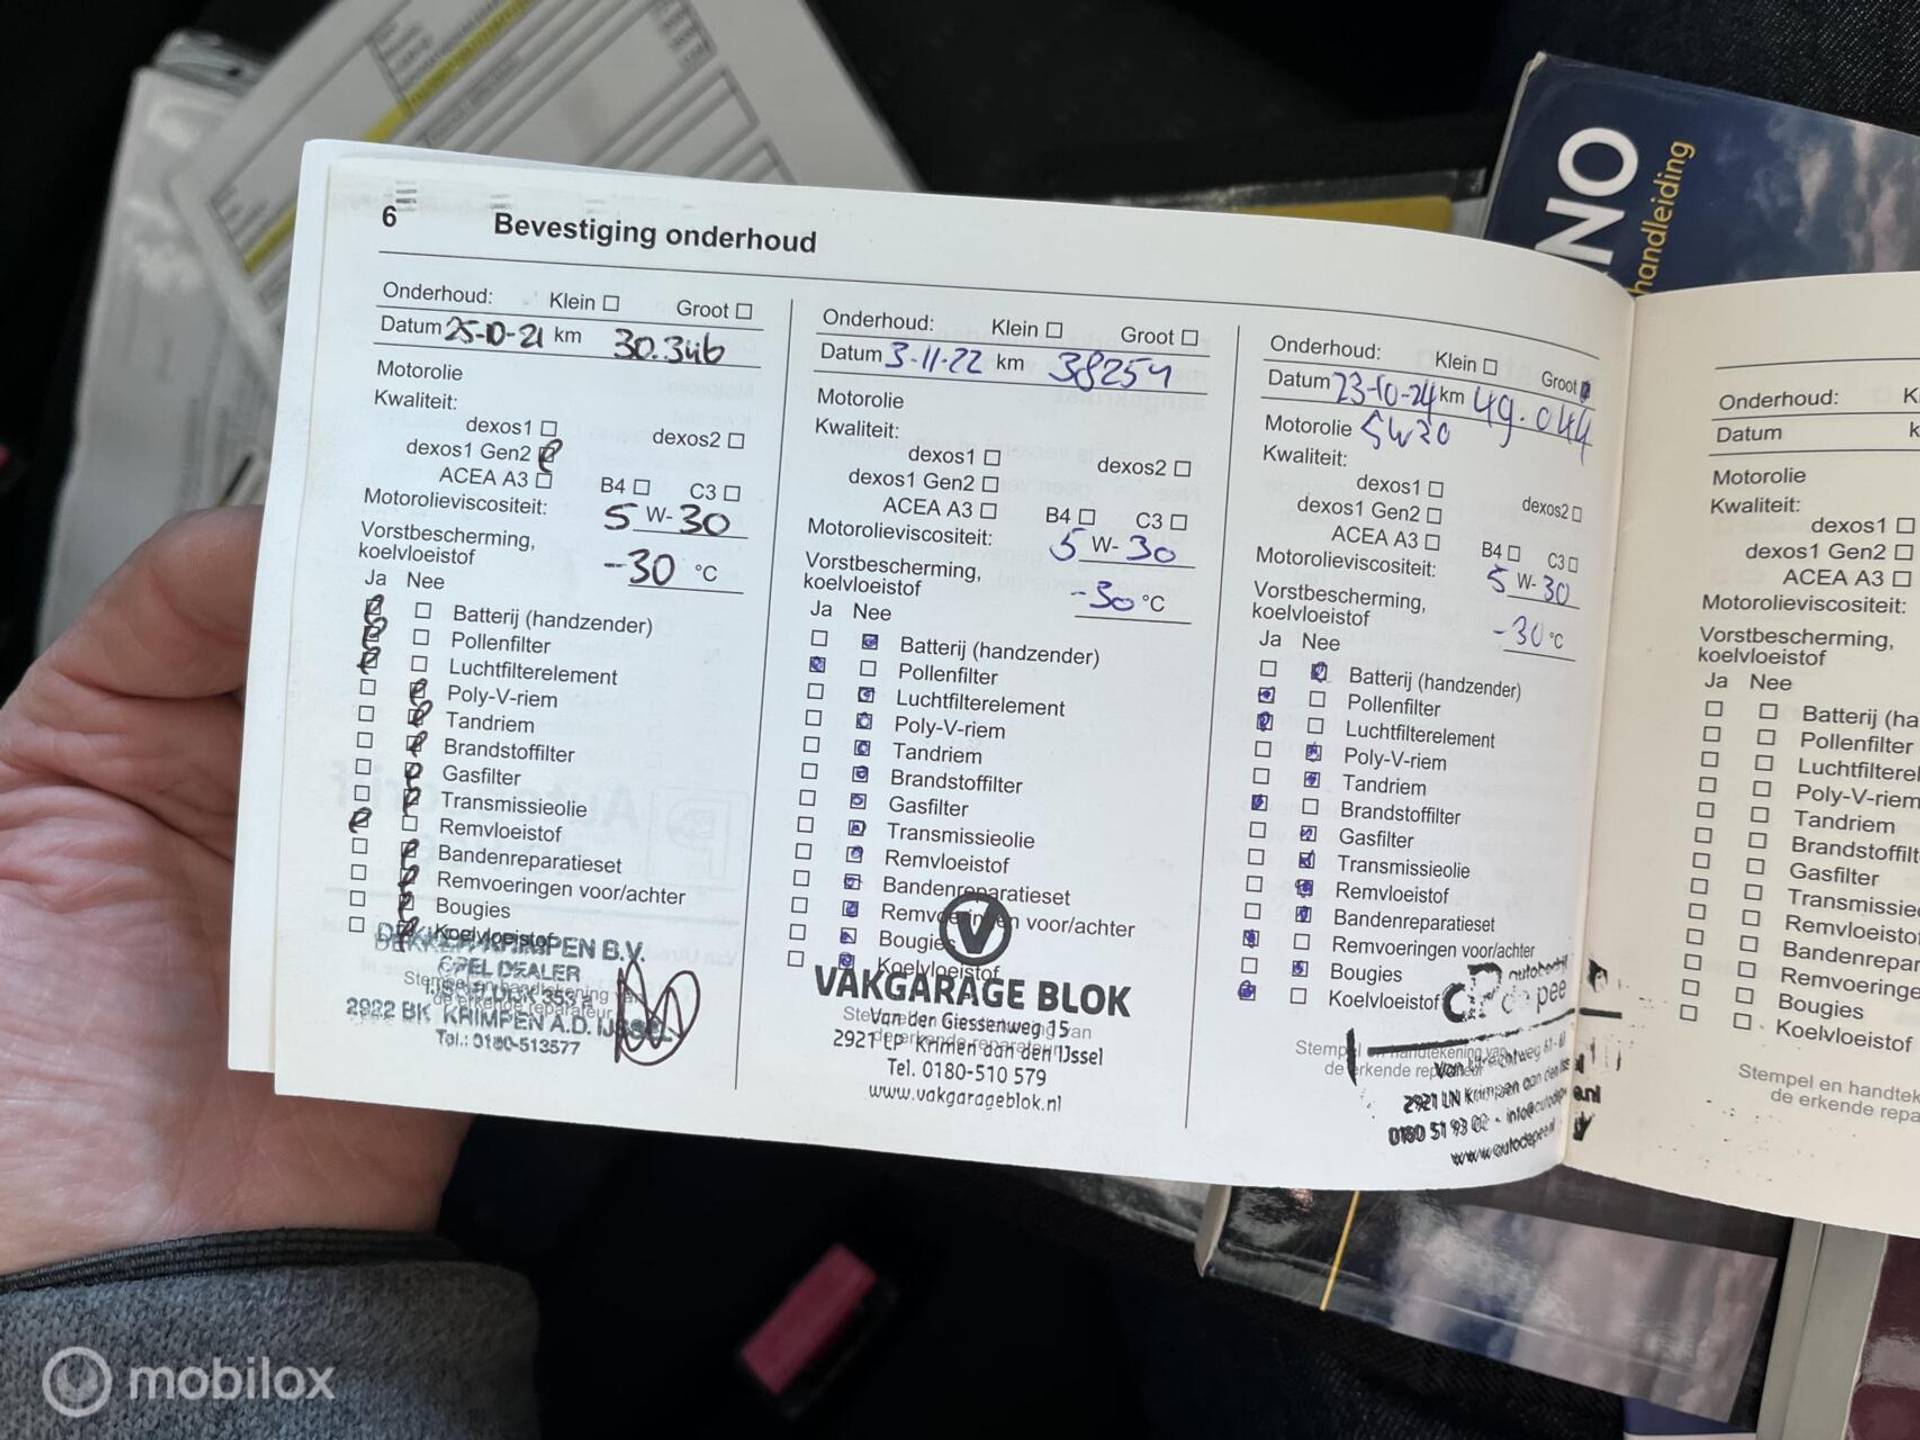 NO
handleiding
6 Bevestiging onderhoud
Onderhoud: Klein ☐ Groot ☐
Datum 25-10-21 km 30.346
Motorolie
Kwaliteit:
dexos1 ☐ dexos2 ☐
dexos1 Gen2 ☑
ACEA A3 ☐ B4 ☐ C3 ☐
Motorolieviscositeit: 5 W-30
Vorstbescherming,
koelvloeistof -30 °C
Ja Nee
☑ ☐ Batterij (handzender)
☑ ☐ Pollenfilter
☑ ☐ Luchtfilterelement
☐ ☑ Poly-V-riem
☐ ☑ Tandriem
☐ ☑ Brandstoffilter
☐ ☑ Gasfilter
☐ ☑ Transmissieolie
☑ ☐ Remvloeistof
☐ ☑ Bandenreparatieset
☐ ☑ Remvoeringen voor/achter
☐ ☑ Bougies
☐ ☑ Koelvloeistof
DEKKER KRIMPEN B.V.
OPEL DEALER
Stempel en handtekening van
de erkende reparateur
IJSSELDIJK 353a
2922 BK KRIMPEN A.D. IJSSEL
Tel.: 0180-513577
Onderhoud: Klein ☐ Groot ☐
Datum 3-11-22 km 38254
Motorolie
Kwaliteit:
dexos1 ☐ dexos2 ☐
dexos1 Gen2 ☐
ACEA A3 ☐ B4 ☐ C3 ☐
Motorolieviscositeit: 5 W-30
Vorstbescherming,
koelvloeistof -30 °C
Ja Nee
☐ ☑ Batterij (handzender)
☑ ☐ Pollenfilter
☐ ☑ Luchtfilterelement
☐ ☑ Poly-V-riem
☐ ☑ Tandriem
☐ ☑ Brandstoffilter
☐ ☑ Gasfilter
☐ ☑ Transmissieolie
☐ ☑ Remvloeistof
☐ ☑ Bandenreparatieset
☐ ☑ Remvoeringen voor/achter
☐ ☑ Bougies
☐ ☑ Koelvloeistof
V
VAKGARAGE BLOK
Stempel en handtekening van
de erkende reparateur
Van der Giessenweg 15
2921 LP Krimen aan den IJssel
Tel. 0180-510 579
www.vakgarageblok.nl
Onderhoud: Klein ☐ Groot ☑
Datum 23-10-24 km 49.044
Motorolie 5w30
Kwaliteit:
dexos1 ☐ dexos2 ☐
dexos1 Gen2 ☐
ACEA A3 ☐ B4 ☐ C3 ☐
Motorolieviscositeit: 5 W-30
Vorstbescherming,
koelvloeistof -30 °C
Ja Nee
☐ ☑ Batterij (handzender)
☑ ☐ Pollenfilter
☑ ☐ Luchtfilterelement
☐ ☑ Poly-V-riem
☐ ☑ Tandriem
☑ ☐ Brandstoffilter
☐ ☑ Gasfilter
☐ ☑ Transmissieolie
☐ ☑ Remvloeistof
☐ ☑ Bandenreparatieset
☑ ☐ Remvoeringen voor/achter
☐ ☑ Bougies
☑ ☐ Koelvloeistof
autobedrijf
de pee
Stempel en handtekening van
de erkende reparateur
2921 LN Krimpen aan den IJssel
0180 51 93 02 - info@autodepee.nl
www.autodepee.nl
Onderhoud: K
Datum k
Motorolie
Kwaliteit:
dexos1 ☐
dexos1 Gen2 ☐
ACEA A3 ☐
Motorolieviscositeit:
Vorstbescherming,
koelvloeistof
Ja Nee
☐ ☐ Batterij (ha
☐ ☐ Pollenfilter
☐ ☐ Luchtfilterel
☐ ☐ Poly-V-riem
☐ ☐ Tandriem
☐ ☐ Brandstoffilt
☐ ☐ Gasfilter
☐ ☐ Transmissie
☐ ☐ Remvloeisto
☐ ☐ Bandenrepar
☐ ☐ Remvoeringe
☐ ☐ Bougies
☐ ☐ Koelvloeistof
Stempel en handtek
de erkende repa
mobilox